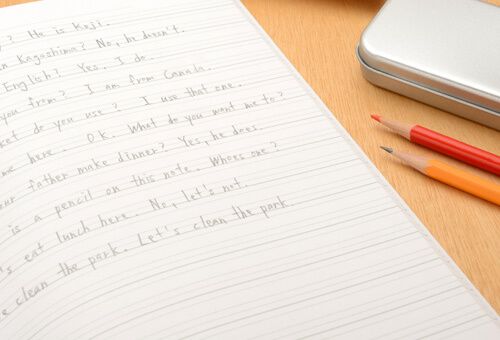 ? He is Koji.
n Kagoshima? No, he doesn't.
English? Yes. I do.
you from? I am from Canada.
ket do you use? I use that one.
me here. OK. What do you want me to?
our father make dinner? Yes, he does.
is a pencil on this note. Whoes one?
's eat lunch here. No, let's not.
e clean the park. Let's clean the park.